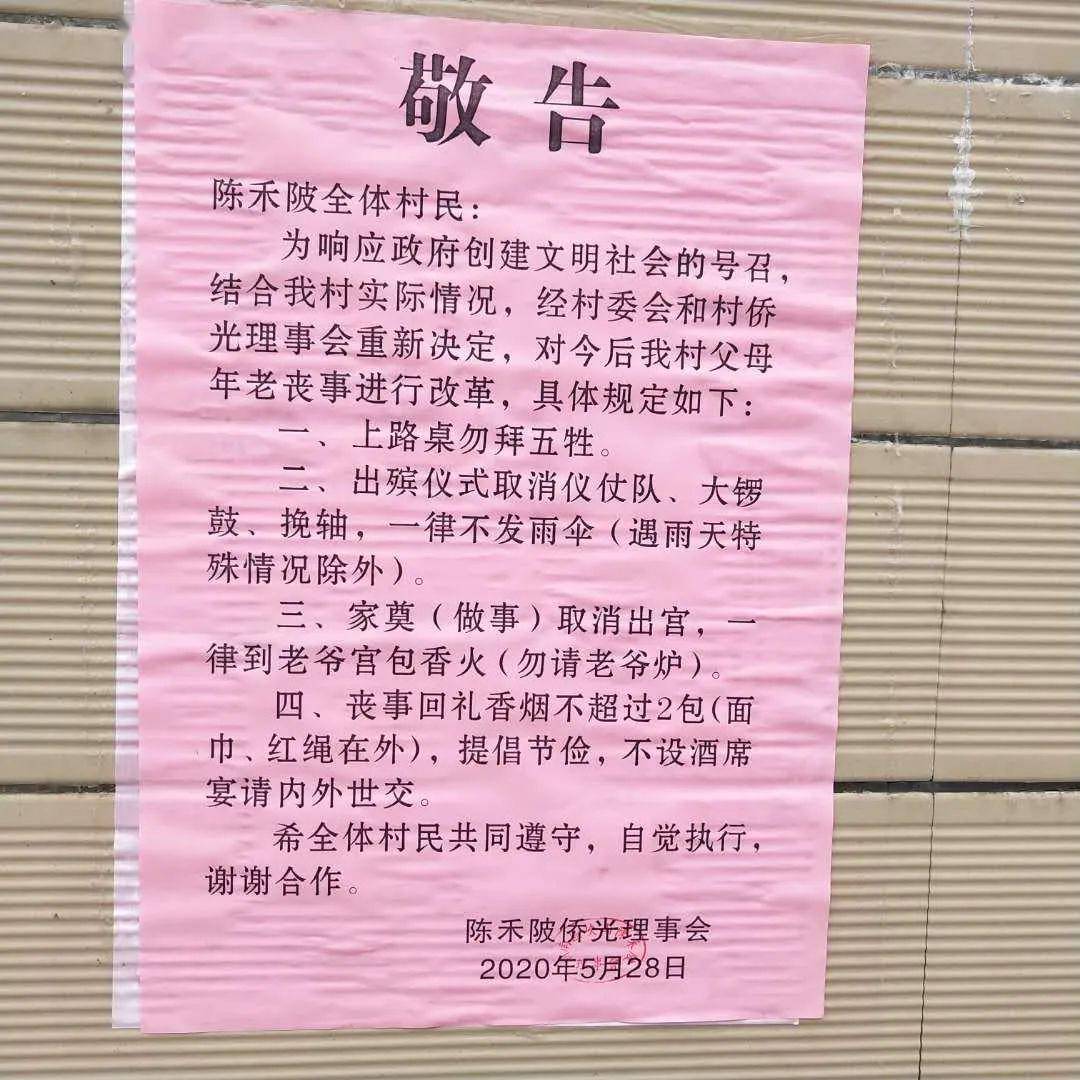 敬告
陈禾陂全体村民：
为响应政府创建文明社会的号召，
结合我村实际情况，经村委会和村侨
光理事会重新决定，对今后我村父母
年老丧事进行改革，具体规定如下：
一、上路桌勿拜五牲。
二、出殡仪式取消仪仗队、大锣
鼓、挽轴，一律不发雨伞（遇雨天特
殊情况除外）。
三、家奠（做事）取消出宫，一
律到老爷宫包香火（勿请老爷炉）。
四、丧事回礼香烟不超过2包(面
巾、红绳在外)，提倡节俭，不设酒席
宴请内外世交。
希全体村民共同遵守，自觉执行，
谢谢合作。
陈禾陂侨光理事会
2020年5月28日